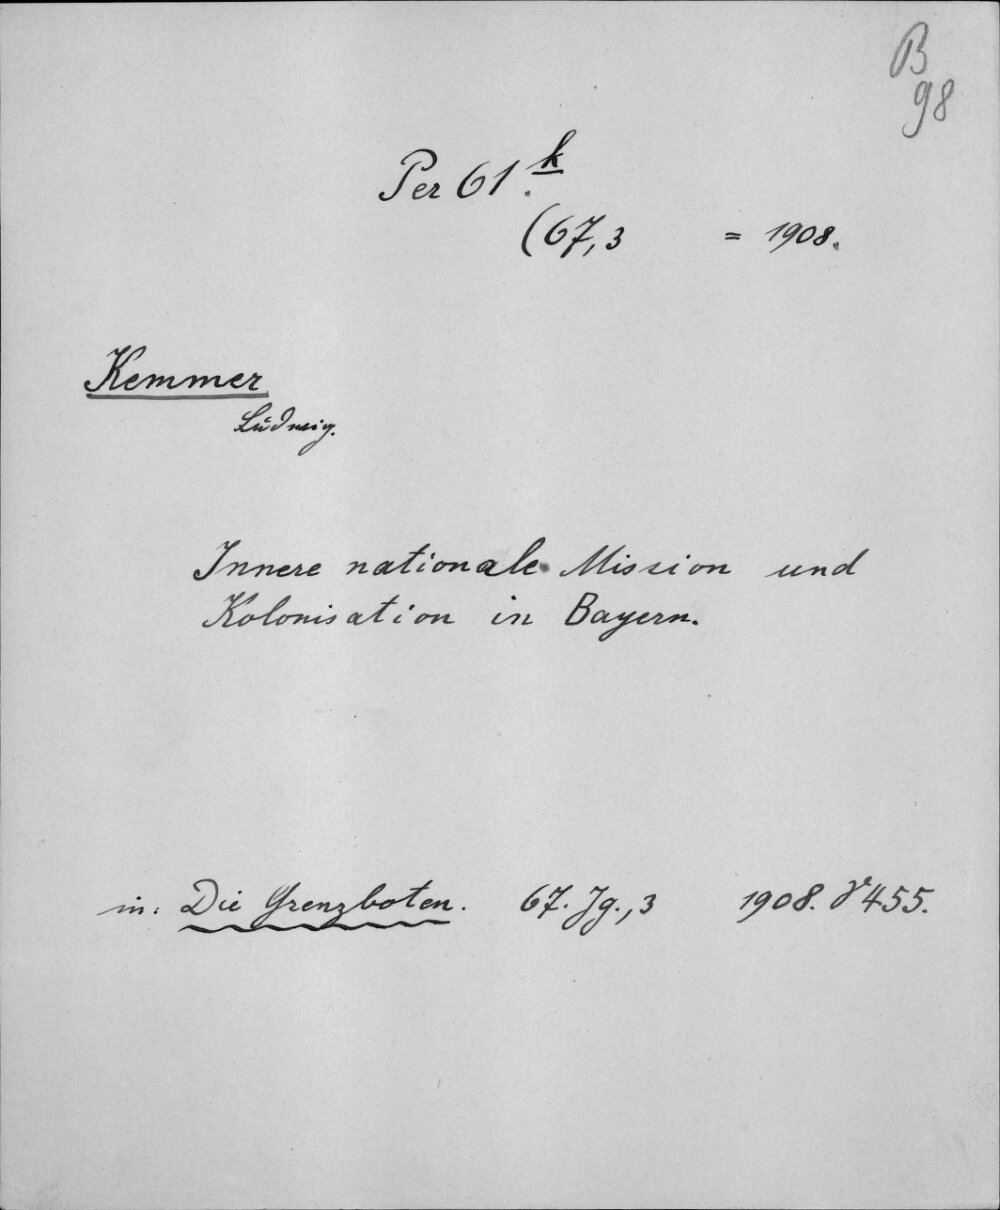 B
98
Per 61.k
(67,3 = 1908.
Kemmer
Ludwig.
Innere nationale Mission und
Kolonisation in Bayern.
in: Die Grenzboten. 67. Jg., 3 1908. S 455.